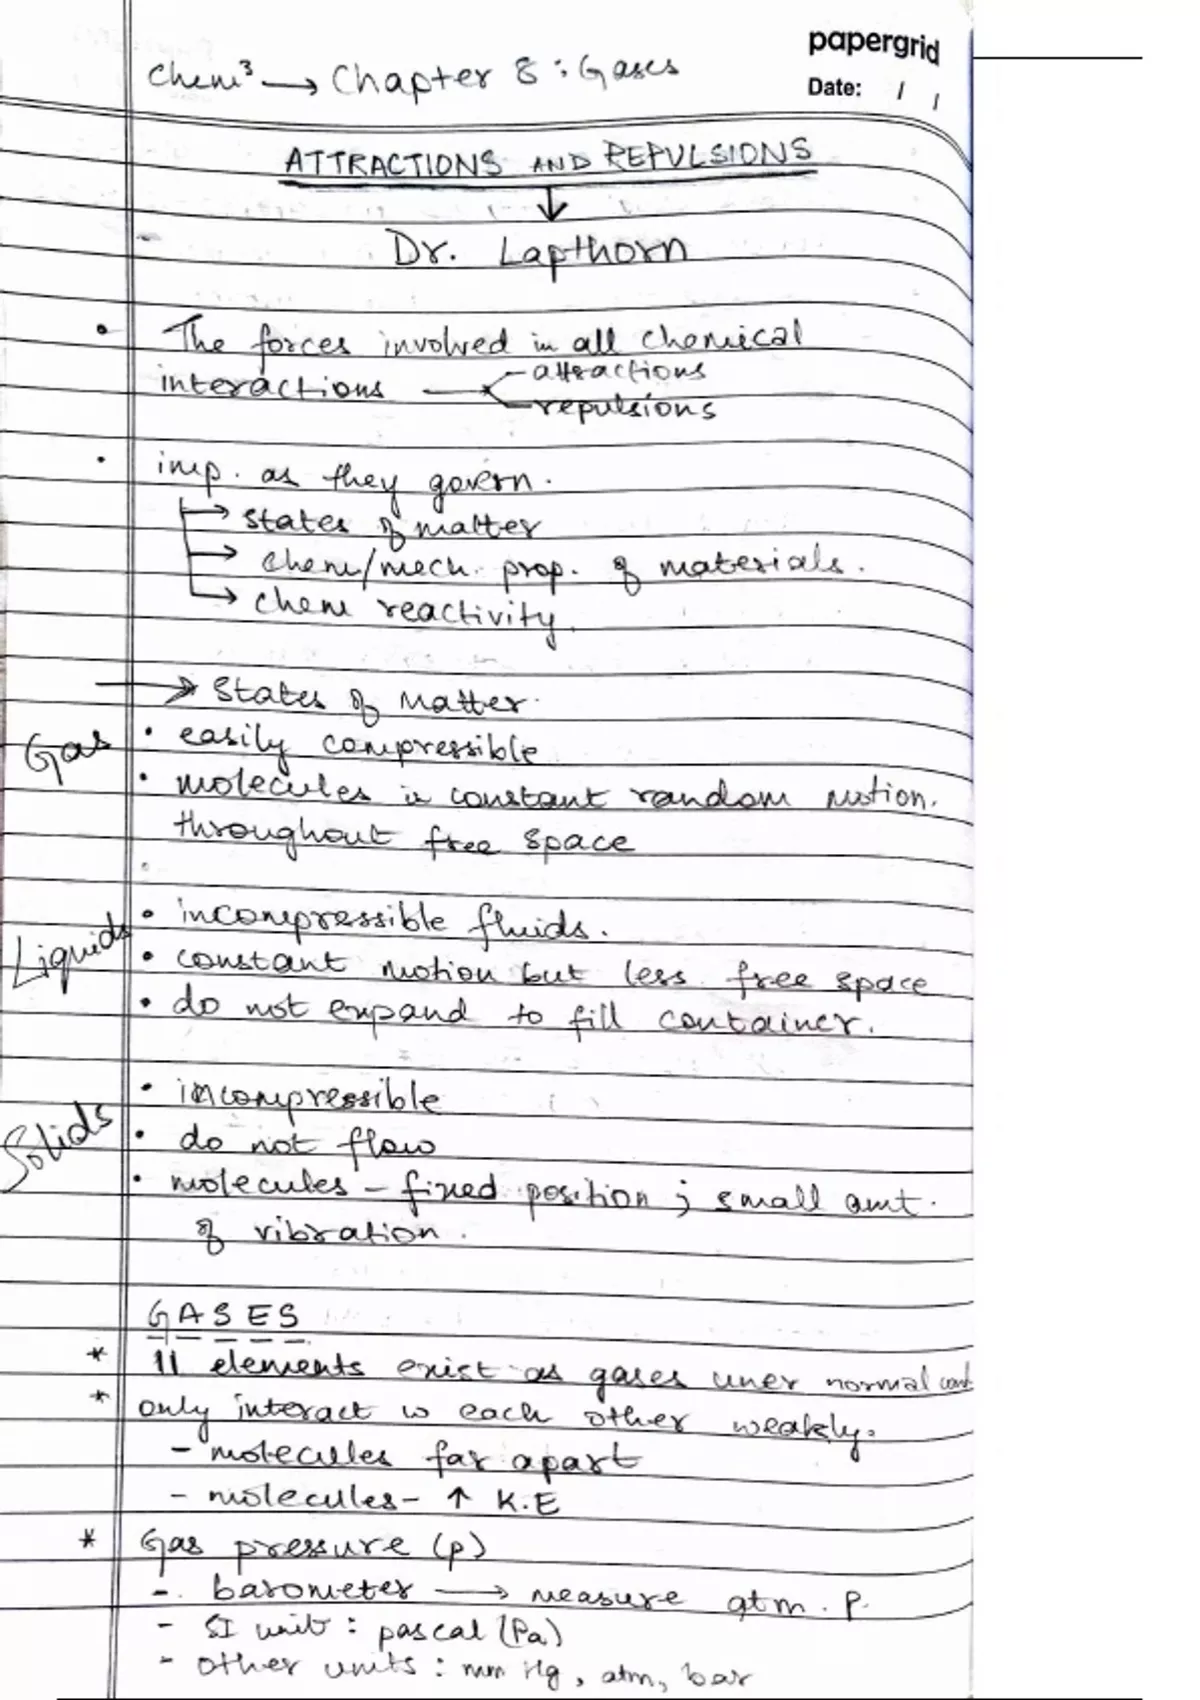 papergrid
Date: / /
Chem³ → Chapter 8 : Gases
ATTRACTIONS AND REPULSIONS
↓
Dr. Lapthorn
• The forces involved in all chemical
interactions → attractions
repulsions
• imp. as they govern.
→ states of matter
→ chem/mech. prop. of materials.
→ chem reactivity.
→ States of Matter.
Gas
• easily compressible
• molecules in constant random motion.
throughout free space
Liquids
• incompressible fluids.
• constant motion but less free space
• do not expand to fill container.
Solids
• incompressible
• do not flow
• molecules – fixed position ; small amt.
of vibration.
GASES
* 11 elements exist as gases uner normal cond
* only interact w each other weakly.
- molecules far apart
- molecules - ↑ K.E
* Gas pressure (p)
- barometer → measure atm. P.
- SI unit : pascal (Pa)
- other units : mm Hg, atm, bar